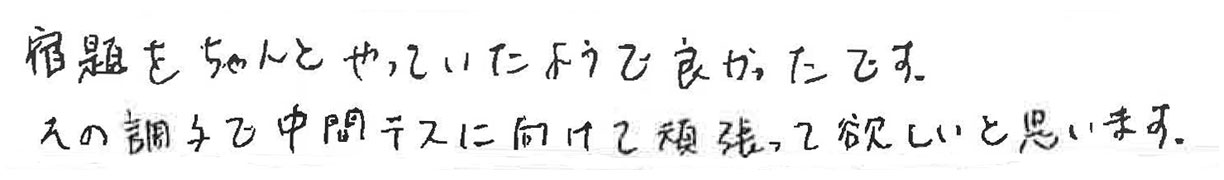 宿題をちゃんとやっていたようで良かったです。
その調子で中間テスに向けて頑張って欲しいと思います。